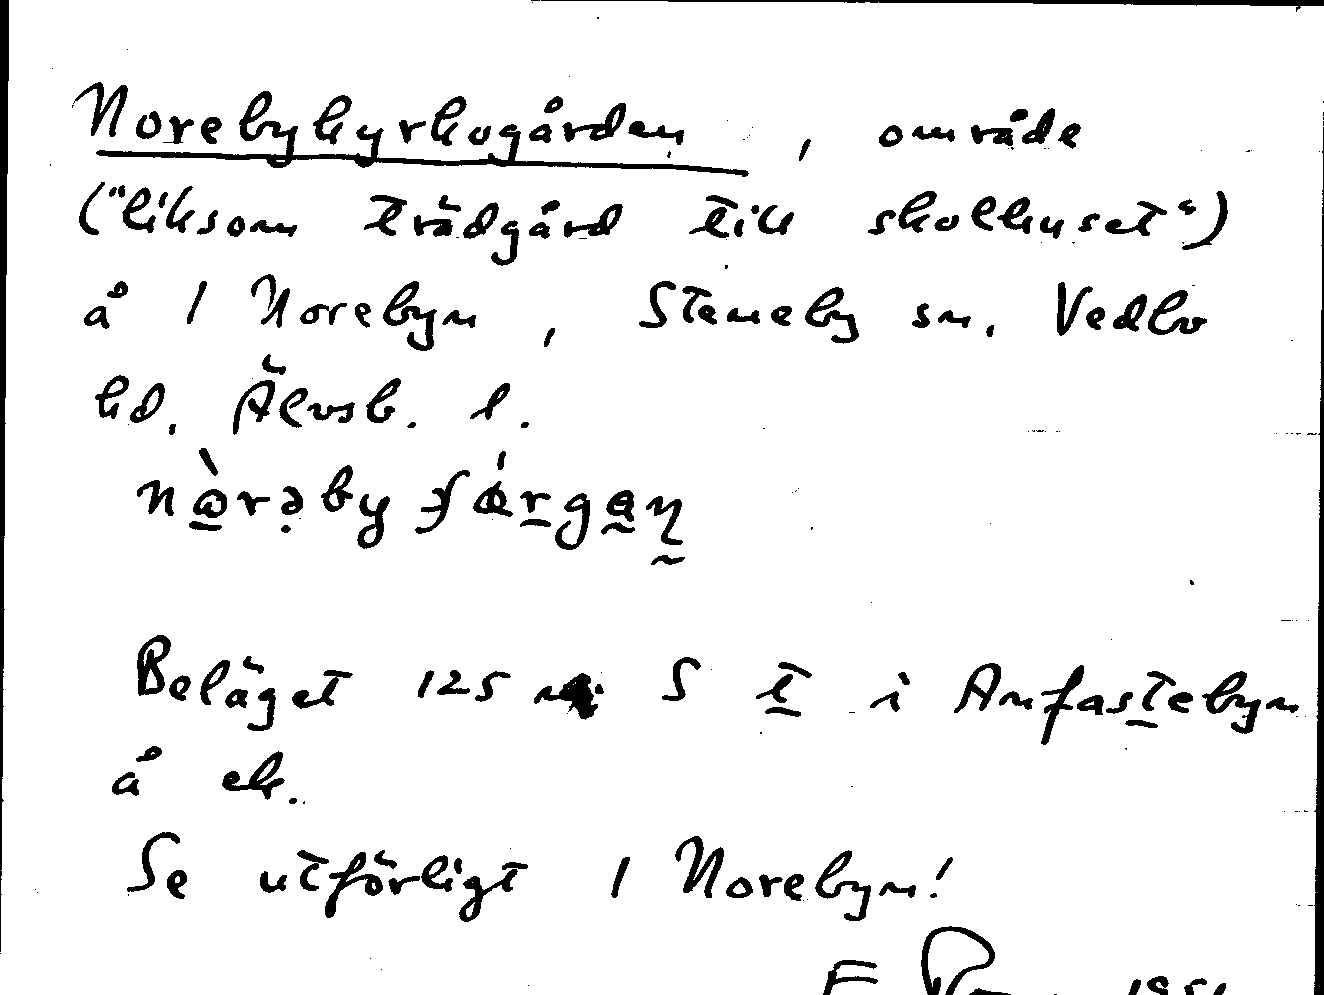 Norebykyrkogården, område
("liksom trädgård till skolhuset")
å 1 Norebyn, Steneby sn. Vedbo
hd. Älvsb. l.
Beläget 125 m S t i Anfastebyn
å ek.
Se utförligt 1 Norebyn!
E